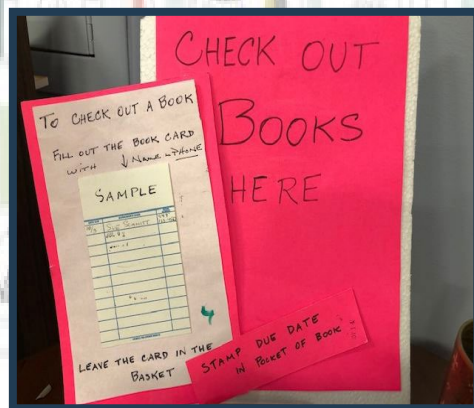 CHECK OUT
BOOKS
HERE
TO CHECK OUT A BOOK
FILL OUT THE BOOK CARD
WITH ↓ NAME & PHONE
SAMPLE
LEAVE THE CARD IN THE
BASKET
STAMP DUE DATE
IN POCKET OF BOOK